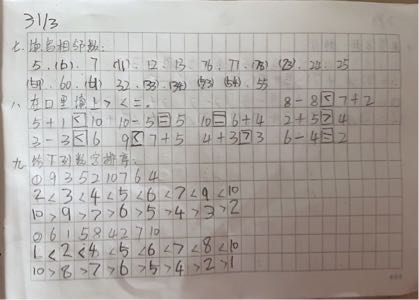 31/3
七、填写相邻数:
5.(6).7 (11).12.13 76.77.(78) (23).24.25
(59).60.(61) 32.(33).(34) (53).(54).55
八、在口里填上>、<、=。 8-8<7+2
5+1<10 10-5=5 10=6+4 2+5>4
3-3<6 9<7+5 4+3>3 6-4=2
九、给下列数字排序:
①9 3 5 2 10 7 6 4
2<3<4<5<6<7<9<10
10>9>7>6>5>4>3>2
②6 1 5 8 4 2 7 10
1<2<4<5<6<7<8<10
10>8>7>6>5>4>2>1